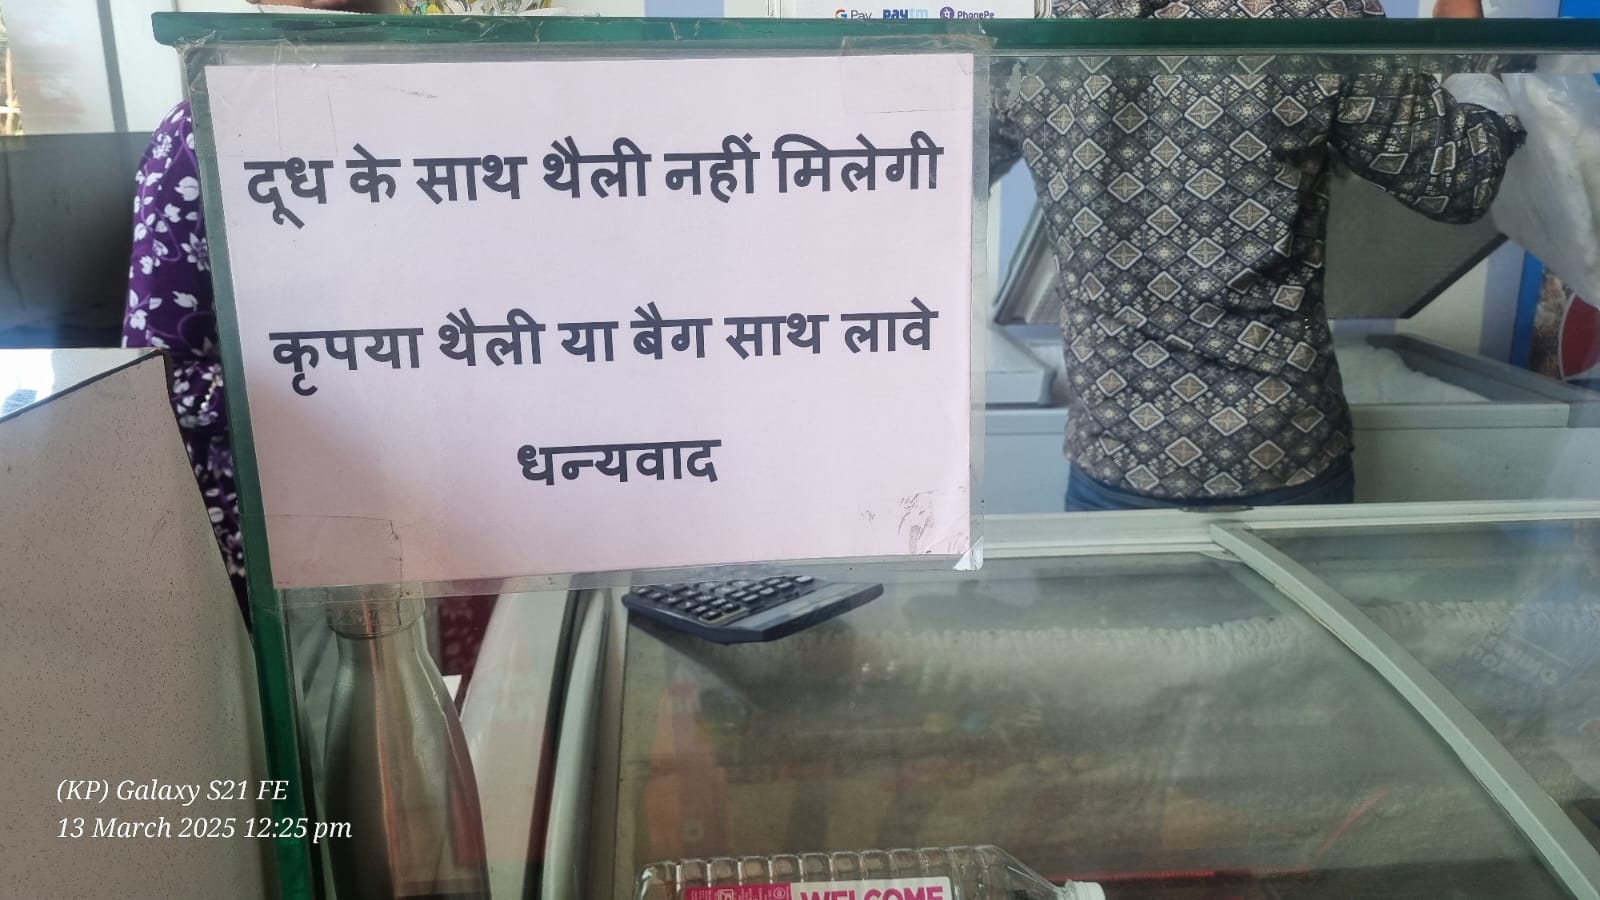 G Pay Paytm PhonePe
दूध के साथ थैली नहीं मिलेगी
कृपया थैली या बैग साथ लावे
धन्यवाद
(KP) Galaxy S21 FE
13 March 2025 12:25 pm
WELCOME